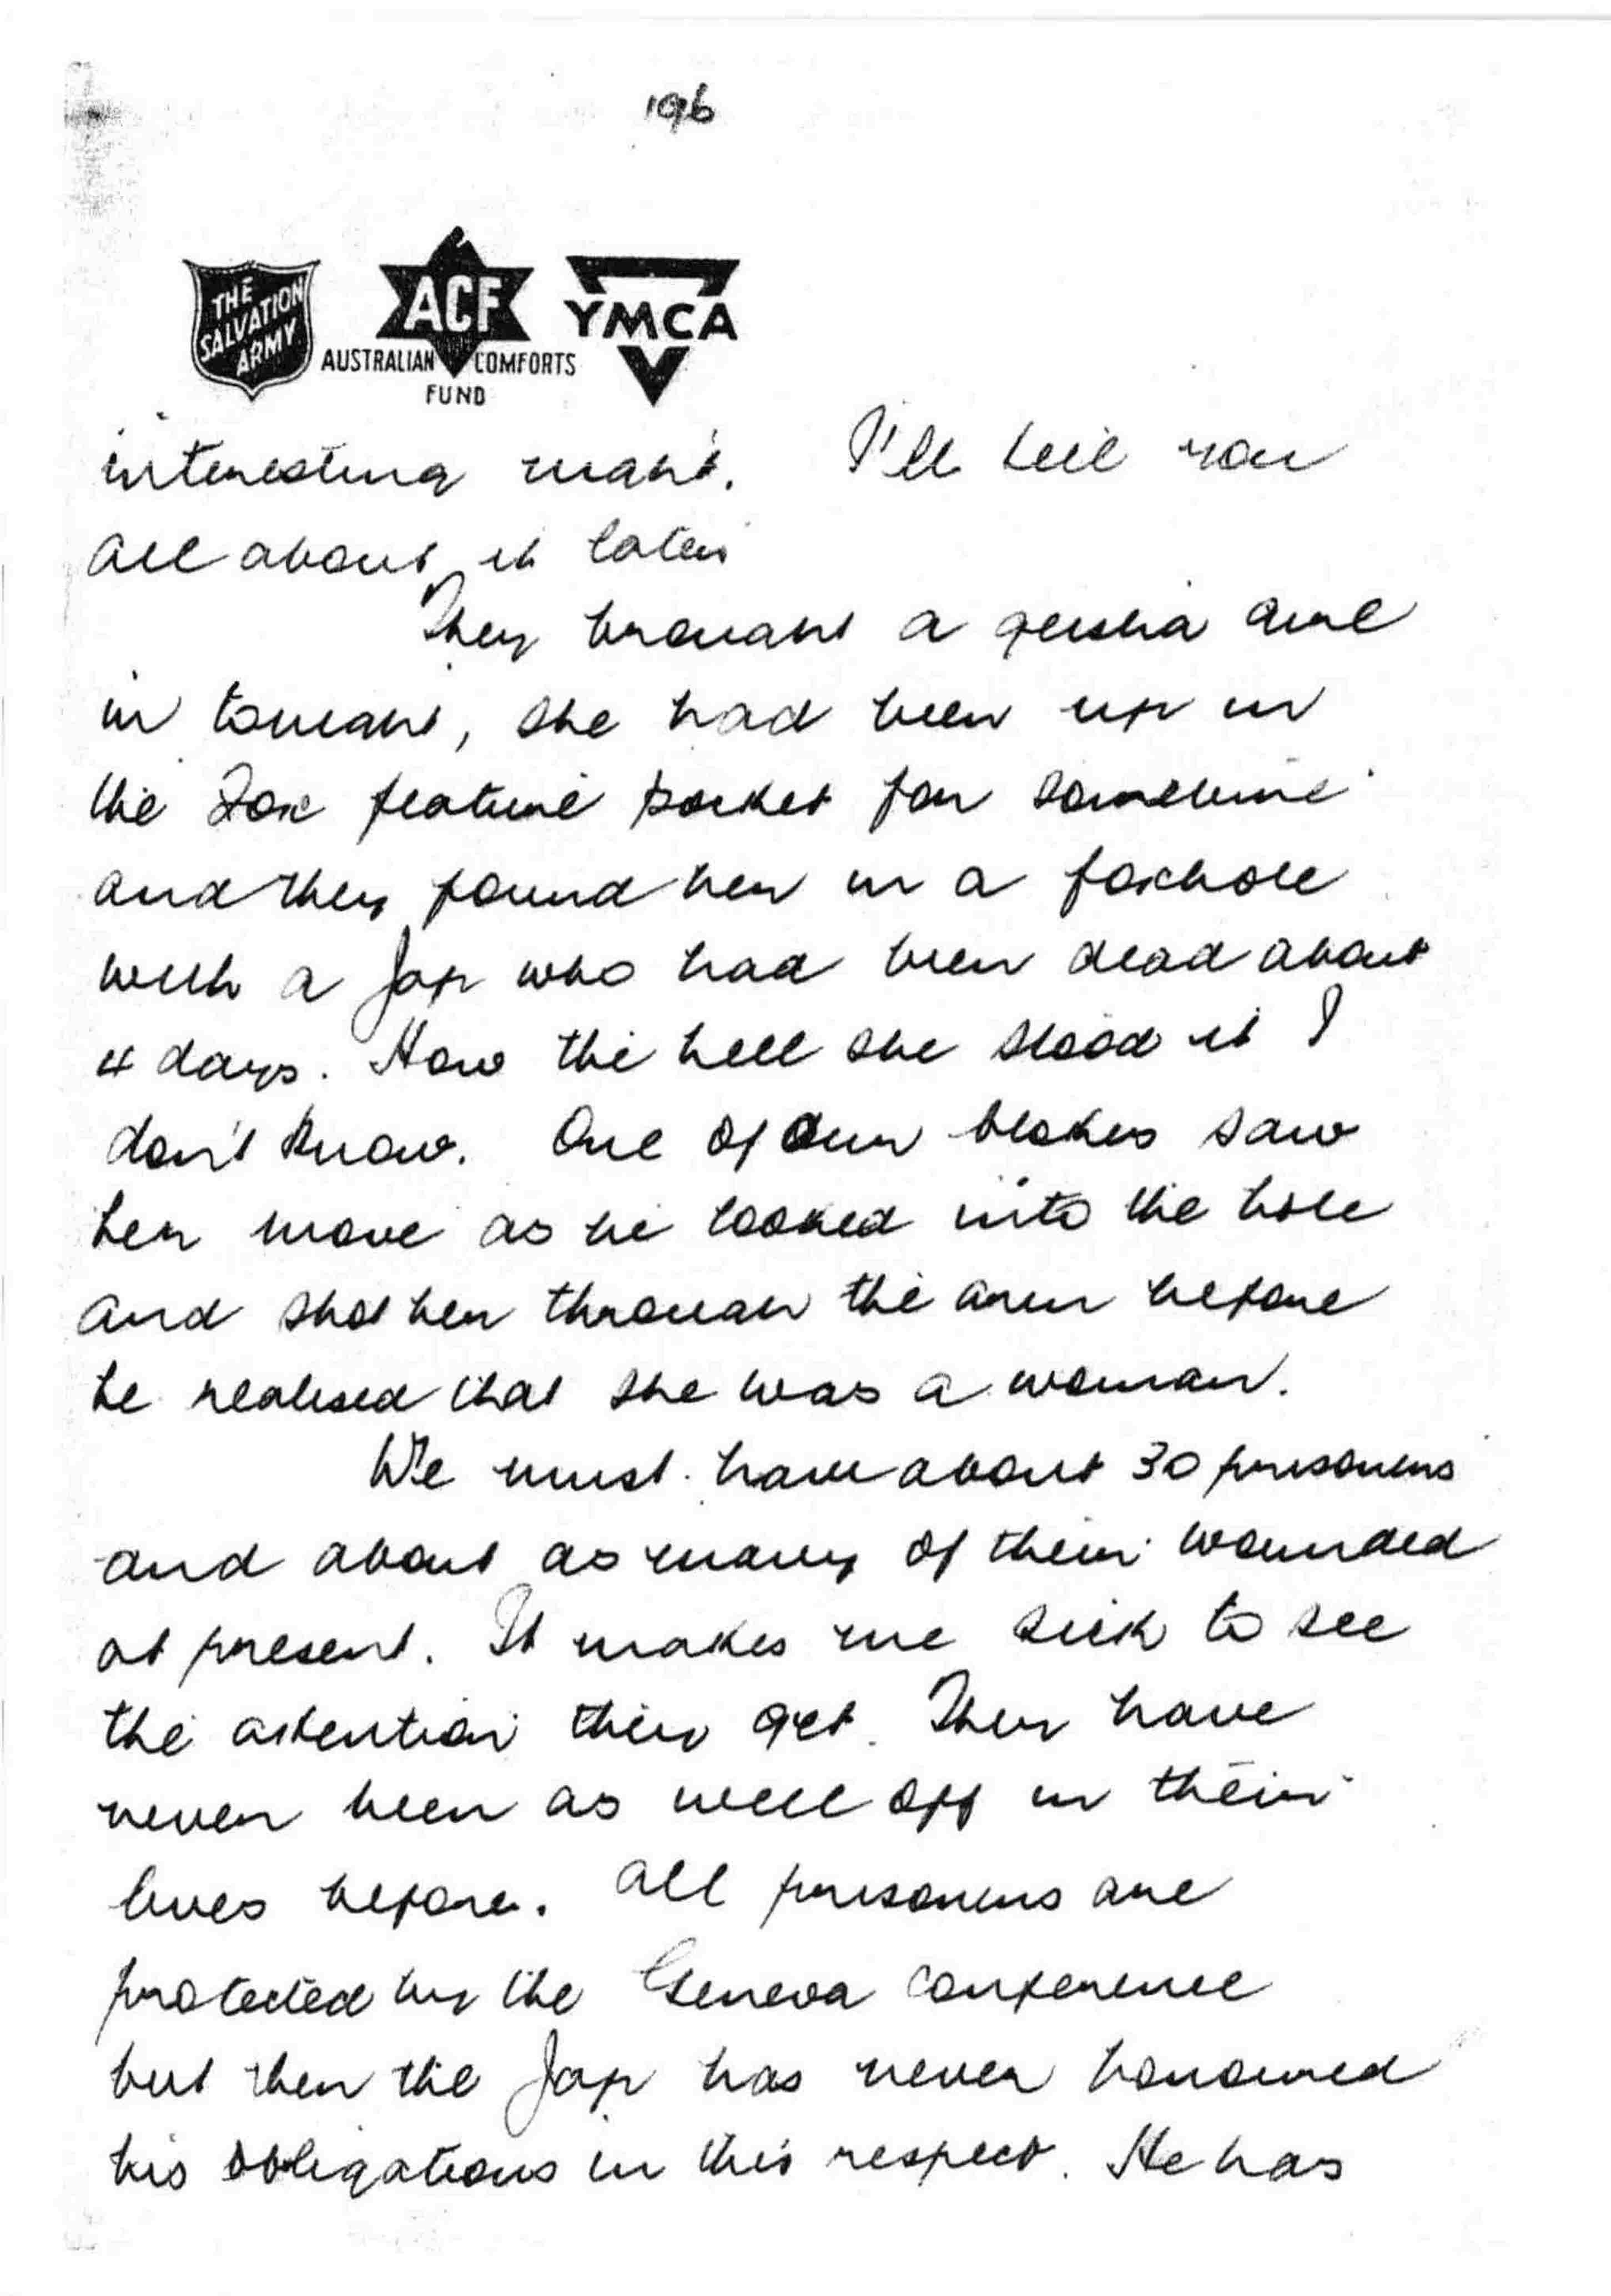 196
THE SALVATION ARMY
ACF
AUSTRALIAN COMFORTS FUND
YMCA
interesting night. I'll tell you
all about it later
They brought a geisha girl
in tonight, she had been up in
the Fox feature pocket for sometime
and they found her in a foxhole
with a Jap who had been dead about
4 days. How the hell she stood it I
don't know. One of our blokes saw
her move as he looked into the hole
and shot her through the arm before
he realised that she was a woman.
We must have about 30 prisoners
and about as many of their wounded
at present. It makes me sick to see
the attention they get. They have
never been as well off in their
lives before. All prisoners are
protected by the Geneva conference
but then the Jap has never honoured
his obligations in this respect. He has